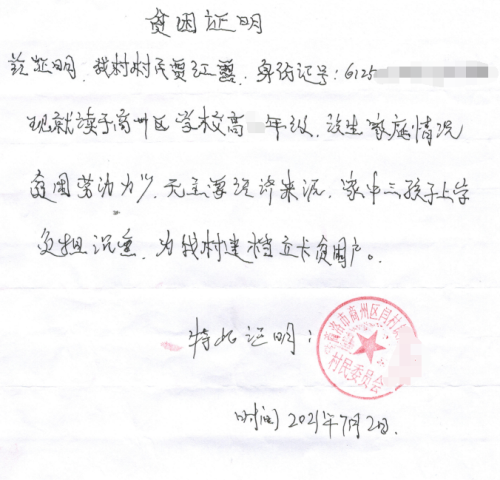 贫困证明
兹证明，我村村民贾红霞，身份证号：6125
现就读于商州区学校高 年级，该生家庭情况
贫困劳动力少，无主要经济来源，家中三孩子上学
负担沉重，为我村建档立卡贫困户。
特此证明：
商洛市商州区闫村
村民委员会
时间2021年7月2日.